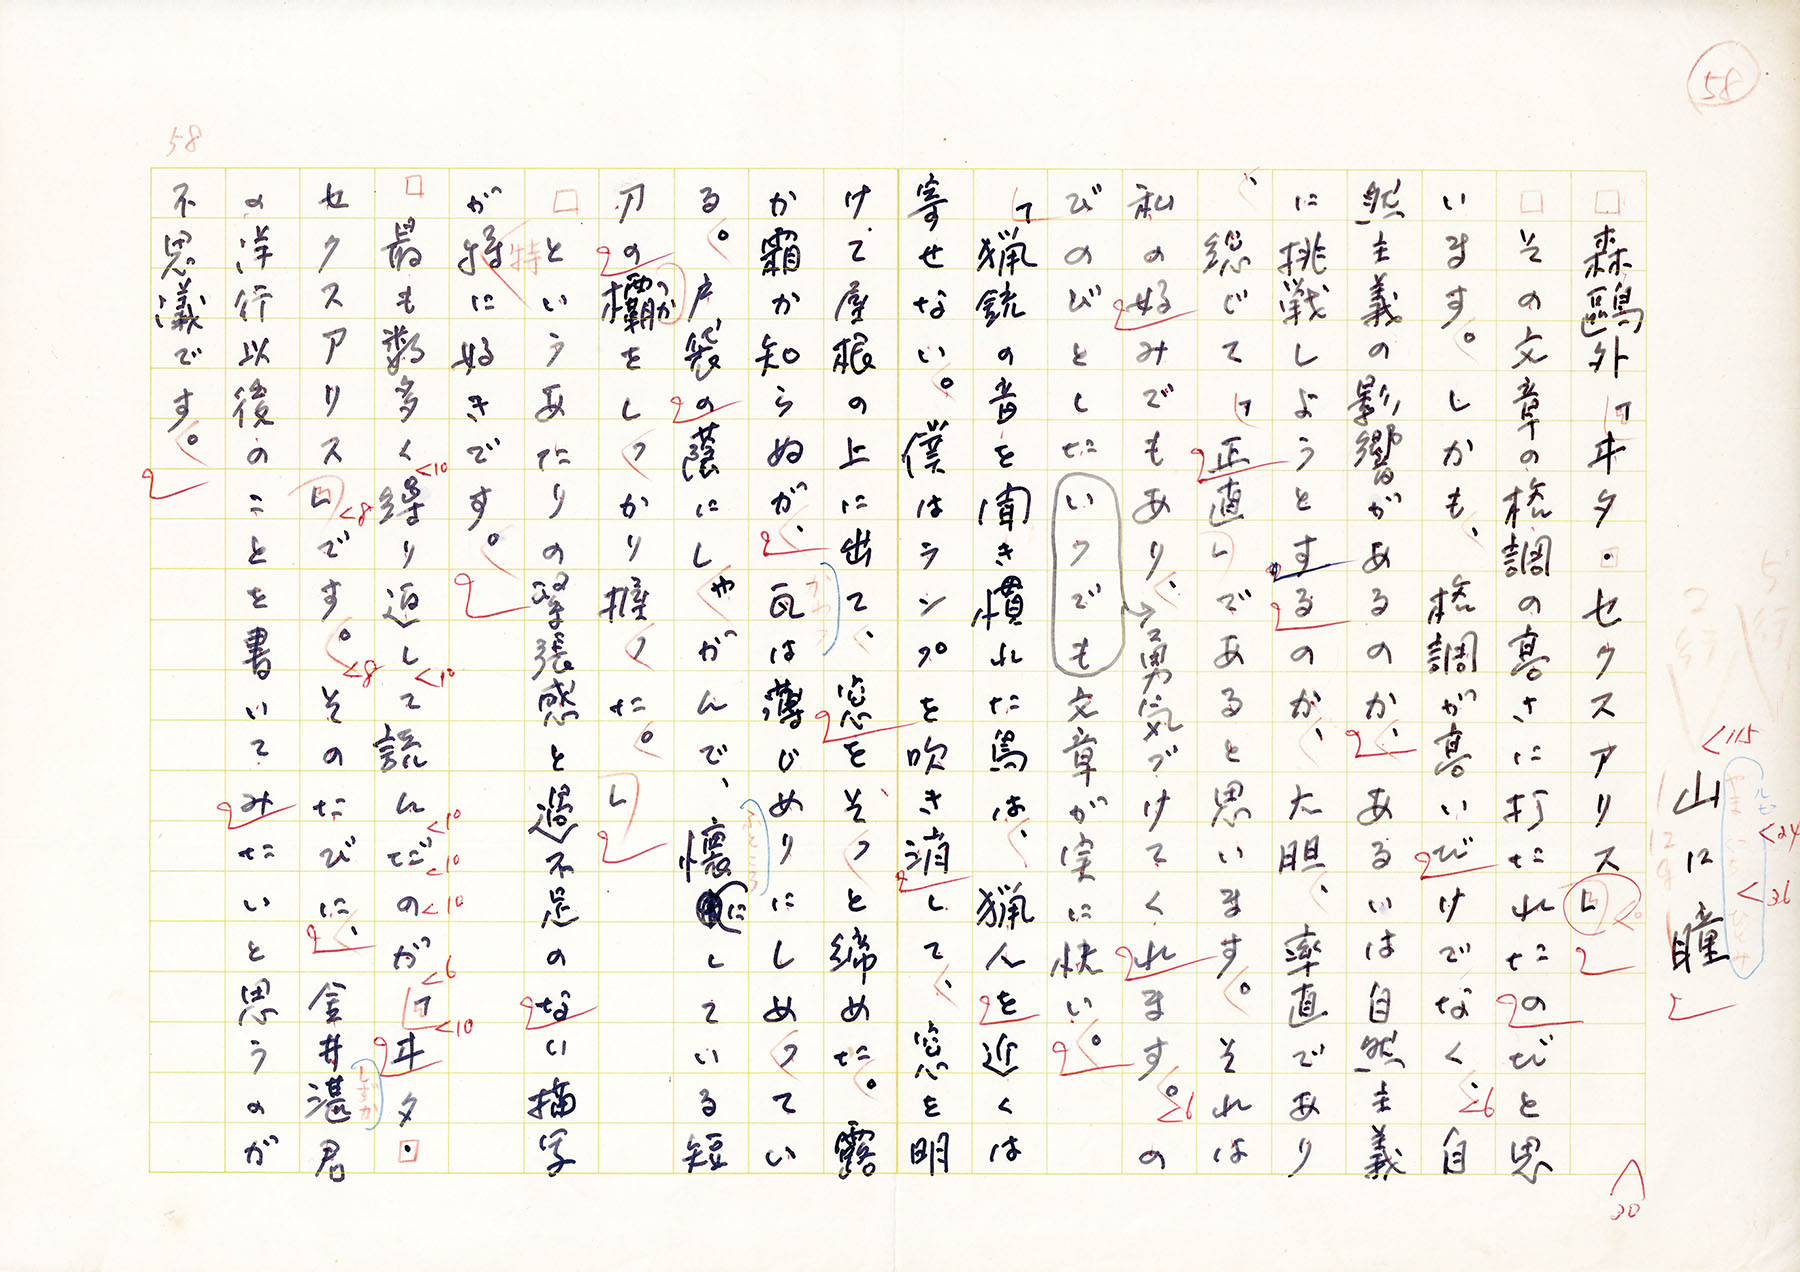 58
山口瞳
やまぐちひとみ
森鷗外『ヰタ・セクスアリス』
その文章の格調の高さに打たれたのだと思
います。しかも、格調が高いだけでなく、自
然主義の影響があるのか、あるいは自然主義
に挑戦しようとするのか、大胆、率直であり
、総じて「正直」であると思います。それは
私の好みでもあり、勇気づけてくれます。の
びのびとしたいつでも文章が実に快い。
「猟銃の音を聞き慣れた鳥は、猟人を近くは
寄せない。僕はランプを吹き消して、窓を明
けて屋根の上に出て、窓をそっと締めた。露
か霜か知らぬが、瓦は薄じめりにしめってい
る。戸袋の蔭にしゃがんで、懐にしている短
刀の欛をしっかり握った。」
というあたりの緊張感と過不足のない描写
が特に好きです。
最も数多く繰り返して読んだのが『ヰタ・
セクスアリス』です。そのたびに、金井湛君
の洋行以後のことを書いてみたいと思うのが
不思議です。
58